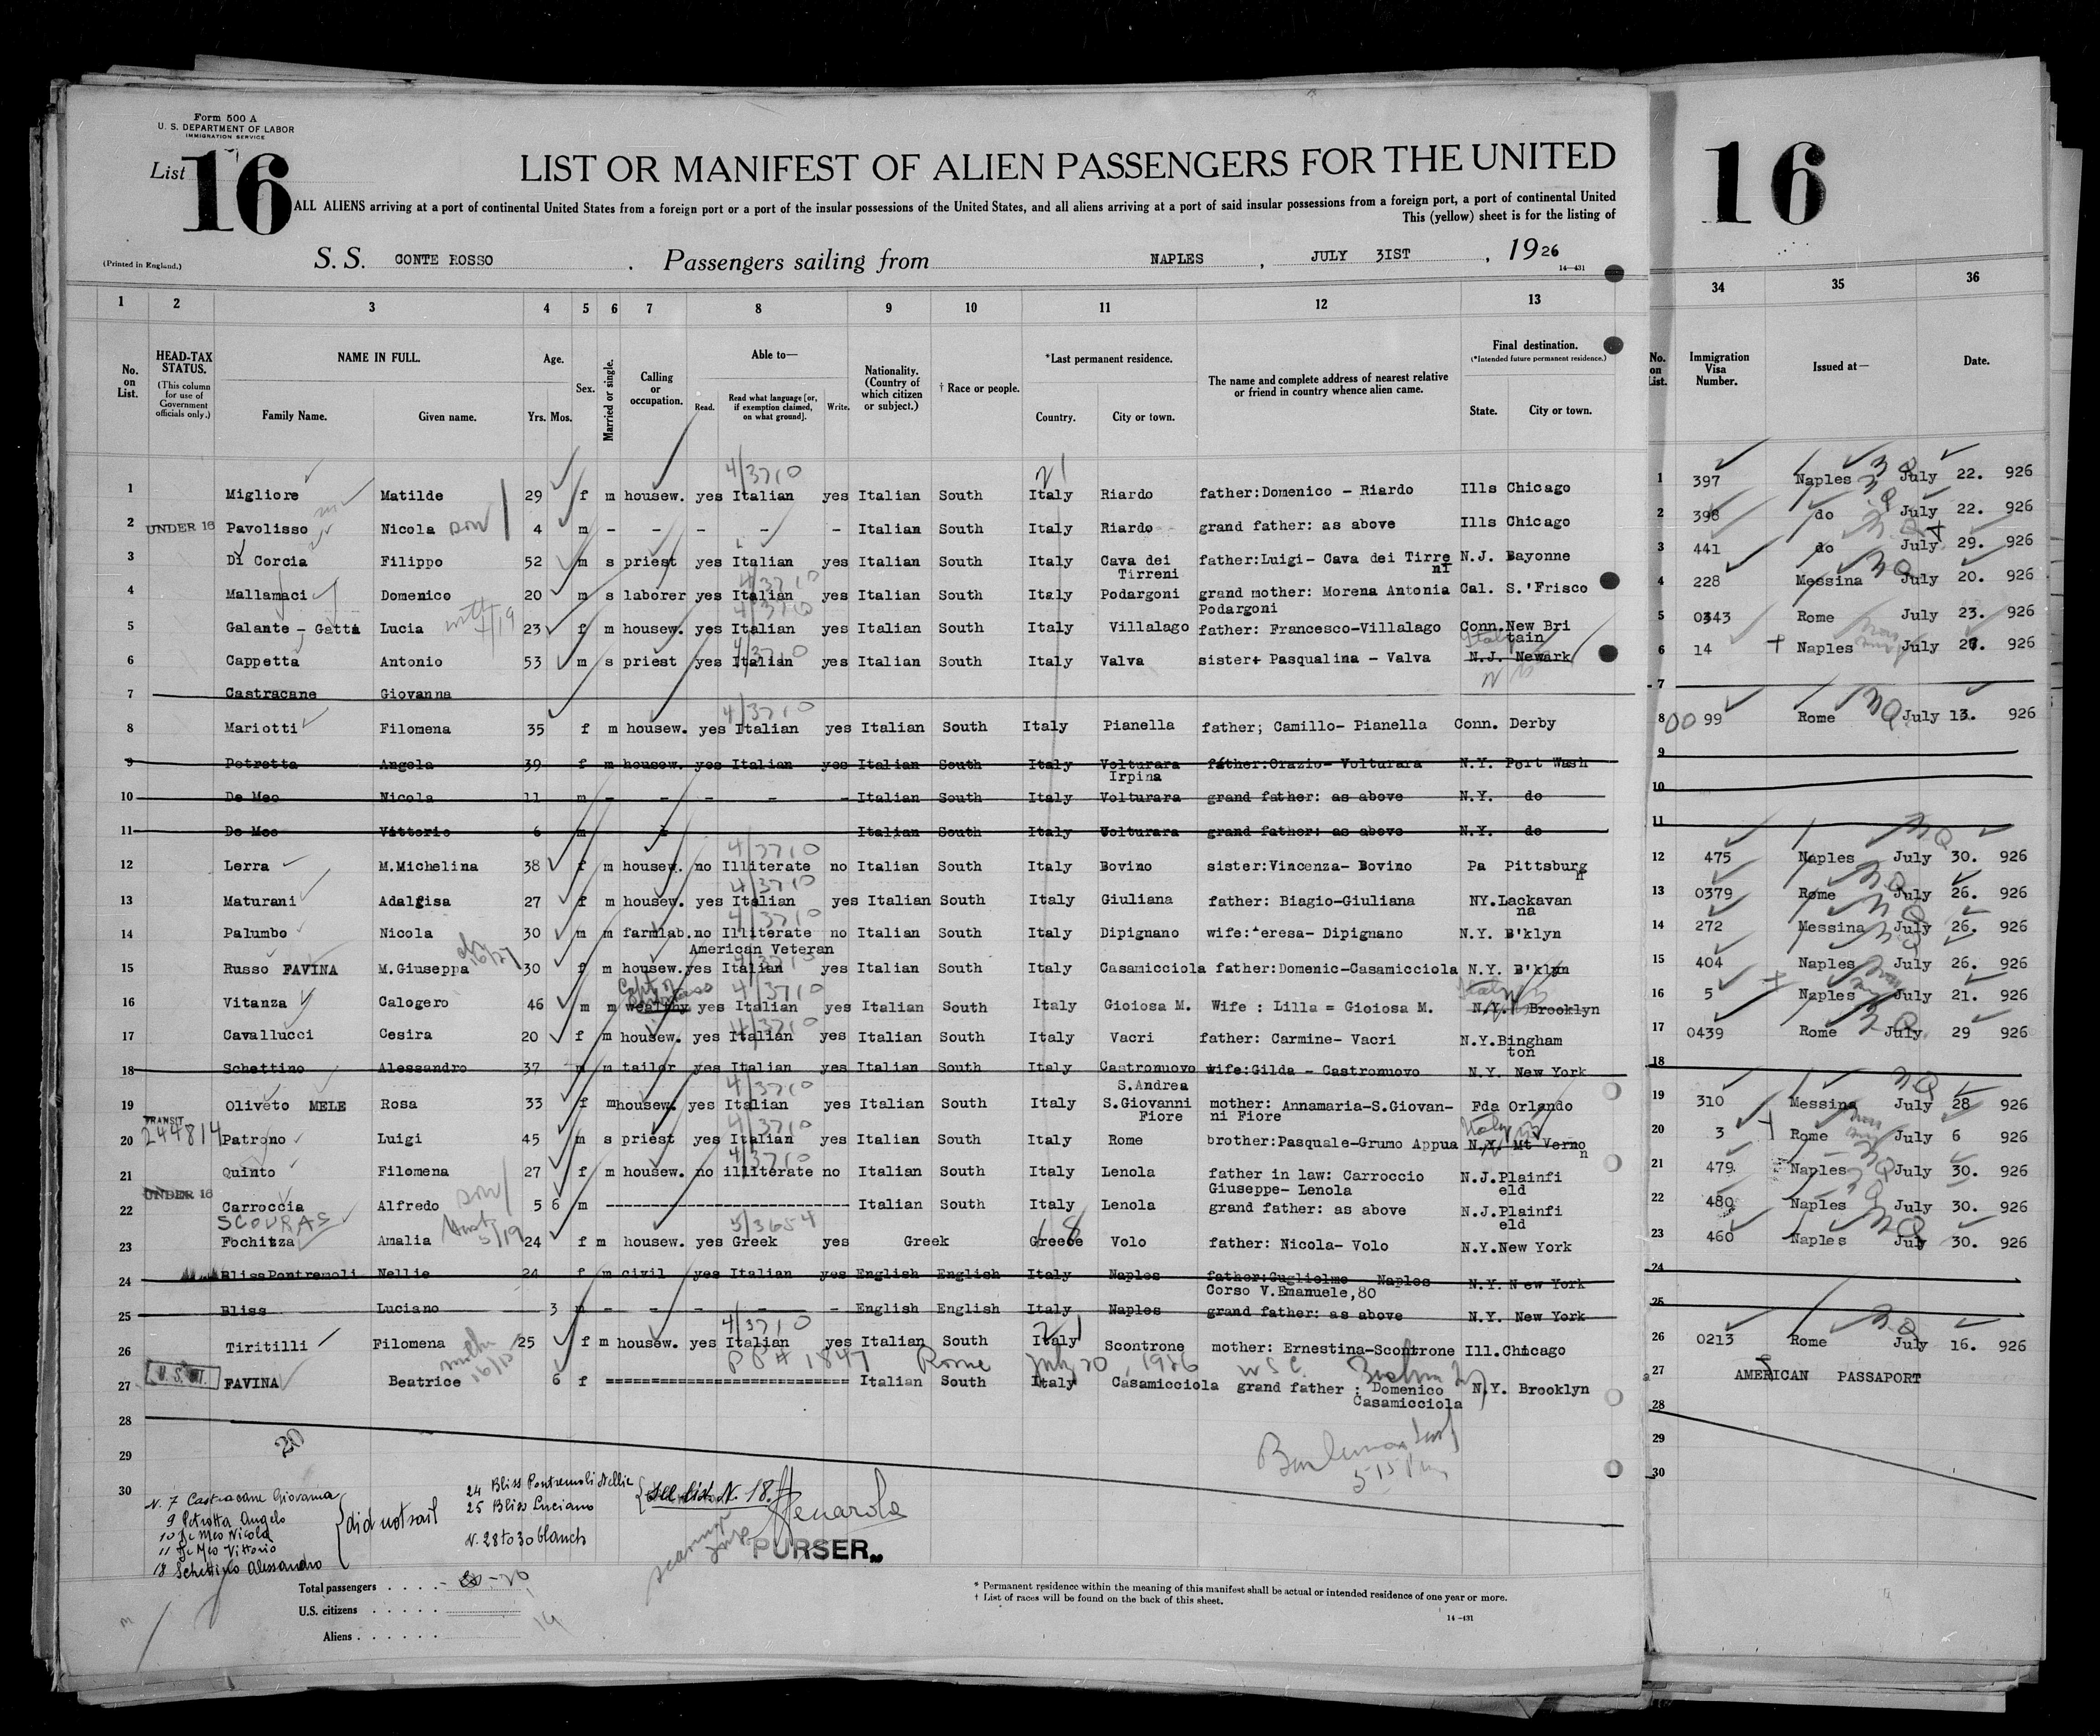 Form 500 A
U. S. DEPARTMENT OF LABOR
IMMIGRATION SERVICE
List 16
LIST OR MANIFEST OF ALIEN PASSENGERS FOR THE UNITED
16
ALL ALIENS arriving at a port of continental United States from a foreign port or a port of the insular possessions of the United States, and all aliens arriving at a port of said insular possessions from a foreign port, a port of continental United
This (yellow) sheet is for the listing of
(Printed in England.)
S. S. CONTE ROSSO . Passengers sailing from NAPLES , JULY 31ST , 1926
14—431
1 2 3 4 5 6 7 8 9 10 11 12 13 34 35 36
No. on List.
HEAD-TAX STATUS. (This column for use of Government officials only.)
NAME IN FULL.
Family Name. Given name.
Age.
Yrs. Mos.
Sex.
Married or single.
Calling or occupation.
Able to—
Read. Read what language [or, if exemption claimed, on what ground]. Write.
Nationality. (Country of which citizen or subject.)
† Race or people.
*Last permanent residence.
Country. City or town.
The name and complete address of nearest relative or friend in country whence alien came.
Final destination.
(*Intended future permanent residence.)
State. City or town.
No. on List.
Immigration Visa Number.
Issued at—
Date.
4/3710 21
1 Migliore Matilde 29 f m housew. yes Italian yes Italian South Italy Riardo father:Domenico - Riardo Ills Chicago 1 397 Naples July 22. 926
2 UNDER 16 Pavolisso Nicola son 4 m - - - - - Italian South Italy Riardo grand father: as above Ills Chicago 2 398 do July 22. 926
3 Di Corcia Filippo 52 m s priest yes Italian yes Italian South Italy Cava dei Tirreni father:Luigi- Cava dei Tirre ni N.J. Bayonne 3 441 do July 29. 926
4/3710
4 Mallamaci Domenico 20 m s laborer yes Italian yes Italian South Italy Podargoni grand mother: Morena Antonia Podargoni Cal. S.'Frisco 4 228 Messina July 20. 926
4/3710
5 Galante - Gatta Lucia 23 f m housew. yes Italian yes Italian South Italy Villalago father: Francesco-Villalago Conn. New Bri tain 5 0343 Rome July 23. 926
4/3710 Italy
6 Cappetta Antonio 53 m s priest yes Italian yes Italian South Italy Valva sister+ Pasqualina - Valva N.J. Newark 6 14 Naples July 926
7 Castracane Giovanna 7
4/3710
8 Mariotti Filomena 35 f m housew. yes Italian yes Italian South Italy Pianella father; Camillo- Pianella Conn. Derby 8 0099 Rome July 13. 926
9 Petretta Angela 39 f m housew. yes Italian yes Italian South Italy Volturara Irpina father:Orazio- Volturara N.Y. Port Wash 9
10 De Meo Nicola 11 m - - - - - Italian South Italy Volturara grand father: as above N.Y. do 10
11 De Meo Vittorio 6 m Italian South Italy Volturara grand father: as above N.Y. do 11
4/3710
12 Lerra M.Michelina 38 f m housew. no Illiterate no Italian South Italy Bovino sister:Vincenza- Bovino Pa Pittsburg h 12 475 Naples July 30. 926
4/3710
13 Maturani Adalgisa 27 f m housew. yes Italian yes Italian South Italy Giuliana father: Biagio-Giuliana NY. Lackavan na 13 0379 Rome July 26. 926
4/3710
14 Palumbo Nicola 30 m m farmlab. no Illiterate no Italian South Italy Dipignano wife: eresa- Dipignano N.Y. B'klyn 14 272 Messina July 26. 926
American Veteran
15 Russo FAVINA M.Giuseppa 30 f m housew. yes Italian yes Italian South Italy Casamicciola father:Domenic-Casamicciola N.Y. B'klyn 15 404 Naples July 26. 926
4/3710 Italy
16 Vitanza Calogero 46 m m wealthy yes Italian yes Italian South Italy Gioiosa M. Wife : Lilla = Gioiosa M. N.Y. Brooklyn 16 5 Naples July 21. 926
4/3710
17 Cavallucci Cesira 20 f m housew. yes Italian yes Italian South Italy Vacri father: Carmine- Vacri N.Y. Bingham ton 17 0439 Rome July 29 926
18 Schettino Alessandro 37 m m tailor yes Italian yes Italian South Italy Castronuovo S.Andrea wife:Gilda - Castronuovo N.Y. New York 18
4/3710
19 Oliveto MELE Rosa 33 f m housew. yes Italian yes Italian South Italy S.Giovanni Fiore mother: Annamaria-S.Giovan- ni Fiore Fda Orlando 19 310 Messina July 28 926
TRANSIT 244814 4/3710 Italy
20 Patrono Luigi 45 m s priest yes Italian yes Italian South Italy Rome brother:Pasquale-Grumo Appua N.Y. Mt Verno n 20 3 Rome July 6 926
4/3710
21 Quinto Filomena 27 f m housew. no illiterate no Italian South Italy Lenola father in law: Carroccio Giuseppe- Lenola N.J. Plainfi eld 21 479 Naples July 30. 926
22 UNDER 16 Carroccia Alfredo son 5 6 m Italian South Italy Lenola grand father: as above N.J. Plainfi eld 22 480 Naples July 30. 926
SCOURAS 5/3654
23 Fochitza Amalia 24 f m housew. yes Greek yes Greek Greece Volo father: Nicola- Volo N.Y. New York 23 460 Naples July 30. 926
24 Bliss Pontremoli Nellie 24 f m civil yes Italian yes English English Italy Naples father:Guglielmo Naples Corso V.Emanuele,80 N.Y. New York 24
25 Bliss Luciano 3 m - - - - - English English Italy Naples grand father: as above N.Y. New York 25
4/3710 21
26 Tiritilli Filomena 25 f m housew. yes Italian yes Italian South Italy Scontrone mother: Ernestina-Scontrone Ill. Chicago 26 0213 Rome July 16. 926
PP# 1847 Rome July 20, 1926
27 FAVINA Beatrice 6 f Italian South Italy Casamicciola grand father : Domenico Casamicciola N.Y. Brooklyn 27 AMERICAN PASSAPORT
28 28
20
29 29
30 30
N. 7 Castracane Giovanna
9 Petrotta Angelo
10 De Meo Nicola
11 De Meo Vittorio
18 Schettino Alessandro
did not sail
24 Bliss Pontremoli Nellie
25 Bliss Luciano
see list N. 18.
N. 28 to 30 blanch
PURSER
Total passengers . . . . 20
U.S. citizens . . . . .
Aliens . . . . . . 19
* Permanent residence within the meaning of this manifest shall be actual or intended residence of one year or more.
† List of races will be found on the back of this sheet.
14—431